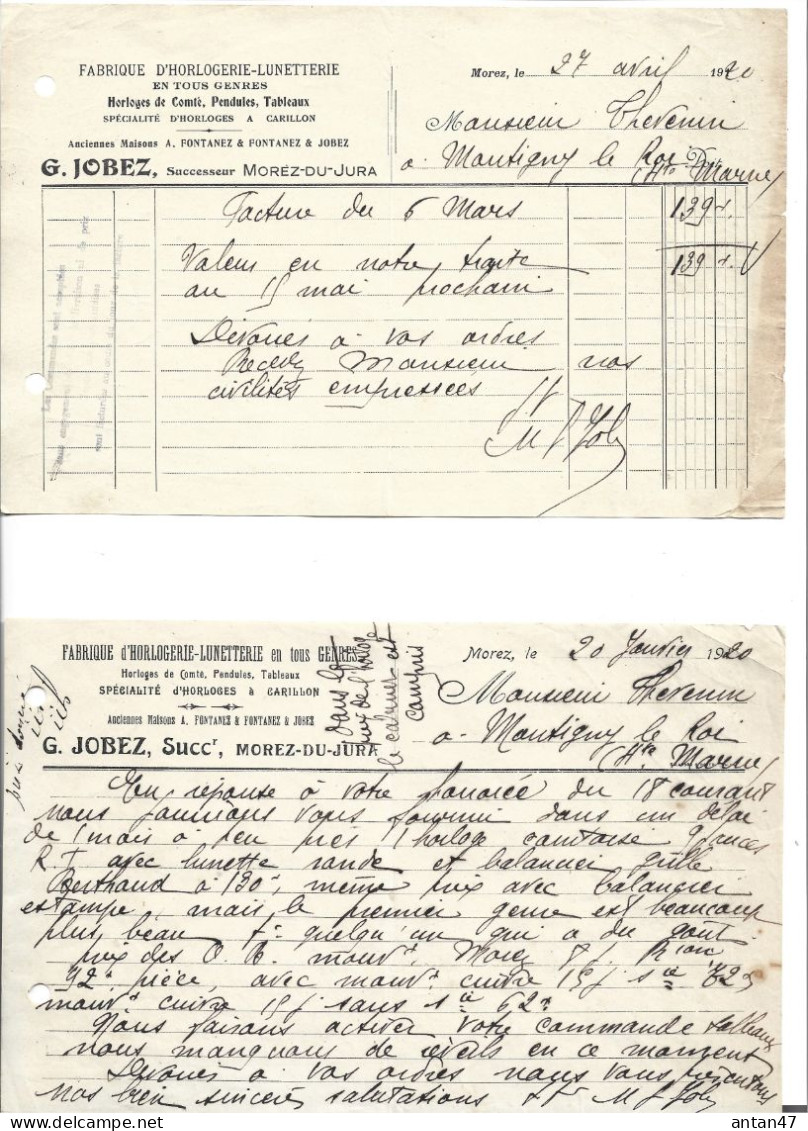 FABRIQUE D'HORLOGERIE-LUNETTERIE
EN TOUS GENRES
Horloges de Comté, Pendules, Tableaux
SPÉCIALITÉ D'HORLOGES A CARILLON
Anciennes Maisons A. FONTANEZ & FONTANEZ & JOBEZ
G. JOBEZ, Successeur MOREZ-DU-JURA
Morez, le 27 avril 1920
Monsieur Thevenin
a Montigny le Roi
(Hte Marne)
Facture du 6 Mars 139
Valeur en notre traite 139
au 15 mai prochain
Dévoués à vos ordres
Recevez Monsieur nos
civilités empressées
FABRIQUE d'HORLOGERIE-LUNETTERIE en tous GENRES
Horloges de Comté, Pendules, Tableaux
SPÉCIALITÉ D'HORLOGES à CARILLON
Anciennes Maisons A. FONTANEZ & FONTANEZ & JOBEZ
G. JOBEZ, Succr, MOREZ-DU-JURA
dans le
prix de l'horloge
est
compris
Morez, le 20 Janvier 1920
Monsieur Thevenin
a Montigny le Roi
(Hte Marne)
En réponse à votre honorée du 18 courant
nous pourrions vous fournir dans un délai
de 1 mois à peu près 1 horloge comtoise
R. T. avec lunette ronde et balancier grille
Bertrand à 130, même prix avec balancier
estampe, mais le premier genre est beaucoup
plus beau pr quelqu'un qui a du goût
prix des O. B. mouvt Morez 8 j.
72 pièce, avec mouvt cuivre 15 j 72
mouvt cuivre 15 j sans 62
Nous faisons activer votre commande tableaux
nous manquons de réveils en ce moment
Dévoués à vos ordres nous vous présentons
nos bien sincères salutations
antan47